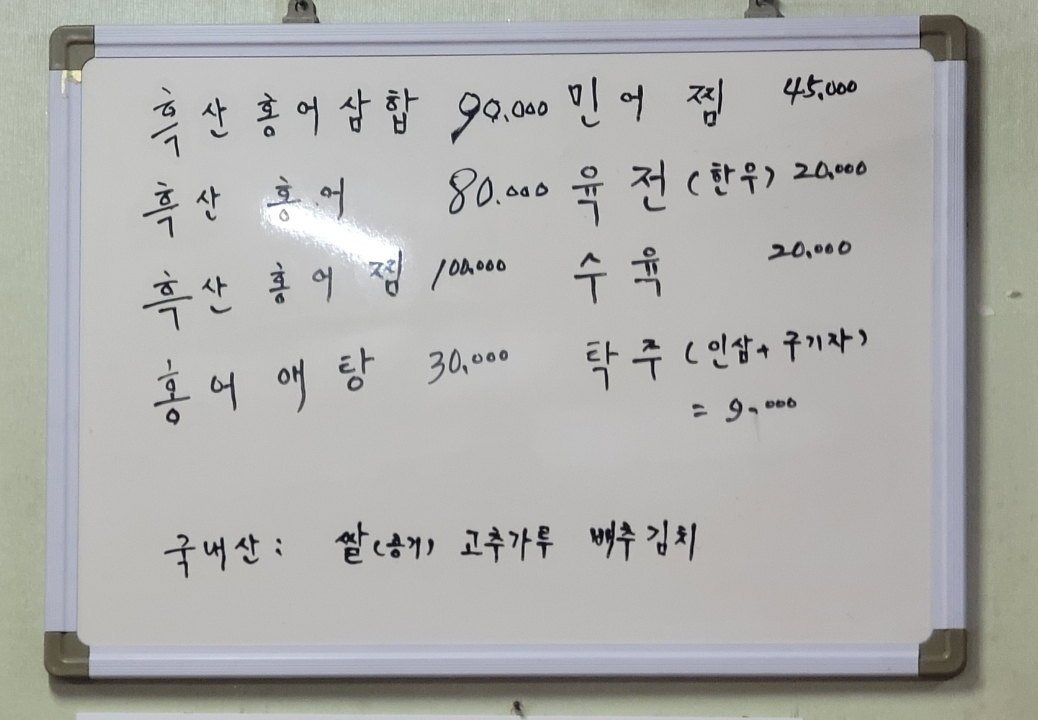 흑산 홍어삼합 90.000 민어 찜 45.000
흑산 홍어 80.000 육전(한우) 20.000
흑산 홍어 찜 100.000 수육 20.000
홍어 애탕 30.000 탁주(인삼+구기자)
= 9.000
국내산: 쌀(공기) 고추가루 배추김치